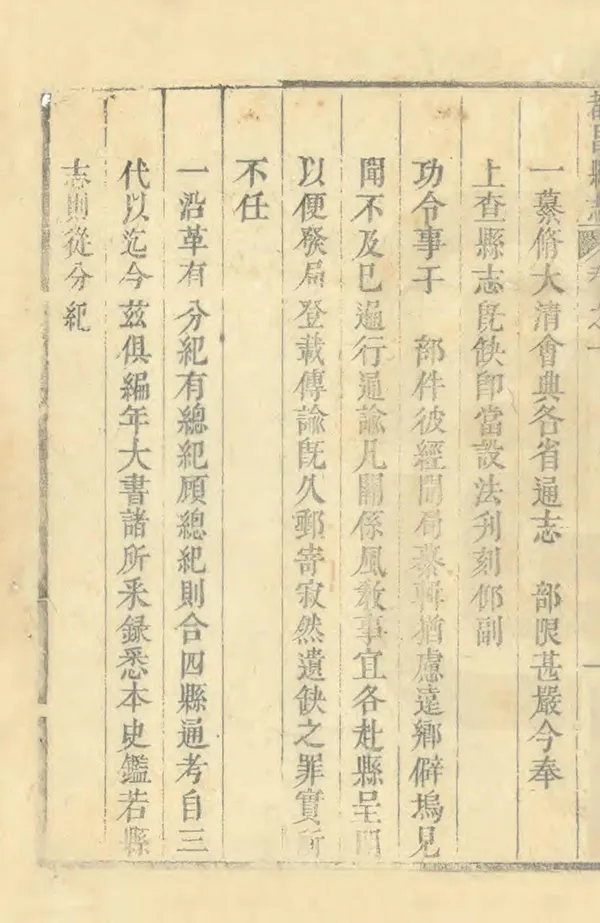 都昌縣志 卷之一
一纂脩大清會典各省通志 部限甚嚴今奉
上查縣志旣缺卽當設法刋刻仰副
功令事于 部件彼經開局纂輯猶慮遠鄉僻塢見
聞不及已遍行通諭凡關係風敎事宜各赴縣呈
以便發局登載傳諭旣久郵寄寂然遺缺之罪實所
不任
一沿革有分紀有總紀顧總紀則合四縣通考自三
代以迄今茲俱編年大書諸所釆録悉本史鑑若縣
志則從分紀